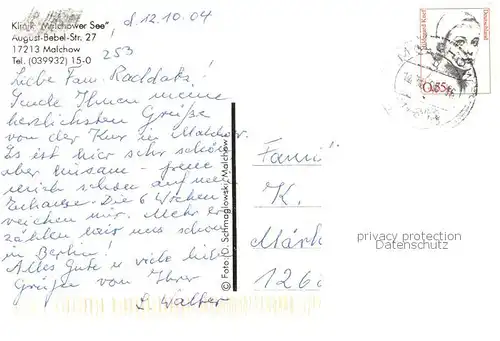 Klinik "Malchower See"
August-Bebel-Str. 27
17213 Malchow
Tel. (039932) 15-0
d. 12.10.04
253
Liebe Fam. Raddatz!
Sende Ihnen meine
herzlichsten Grüße
von der Kur in Malchow.
Es ist hier sehr schön
aber einsam - freue
mich schon auf mein
Zuhause. Die 6 Wochen
reichen mir. Mehr er
zählen wir uns schon
in Berlin!
Alles Gute u. viele liebe
Grüße von Ihrer
Walter
© Foto: D. Schmaglowski, Malchow
Famil
K.
Märk
1262
Hildegard Knef
Deutschland
0,55
privacy protection
Datenschutz